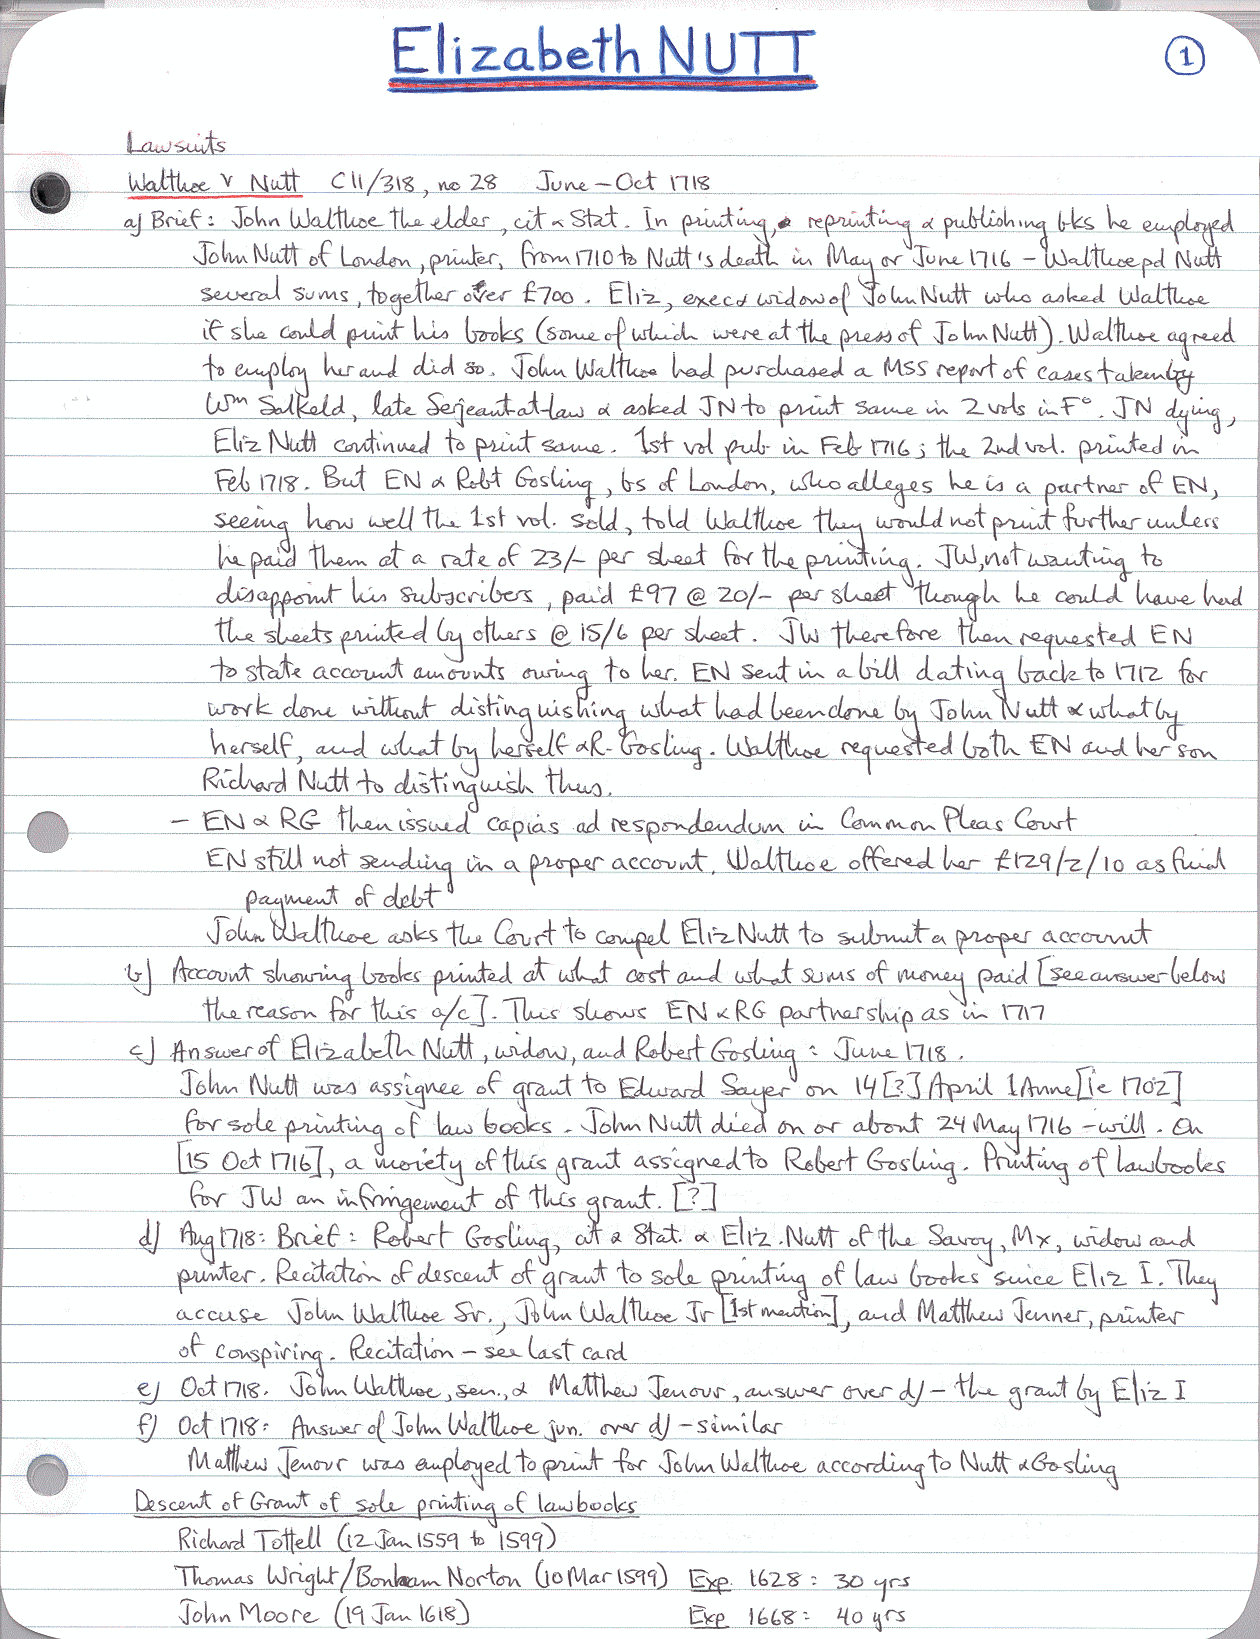 Elizabeth NUTT
1
Lawsuits
Walthoe v Nutt C11/318, no 28 June – Oct 1718
a) Brief: John Walthoe the elder, cit & Stat. In printing, reprinting & publishing bks he employed
John Nutt of London, printer, from 1710 to Nutt's death in May or June 1716 – Walthoe pd Nutt
several sums, together over £700. Eliz, exec & widow of John Nutt who asked Walthoe
if she could print his books (some of which were at the press of John Nutt). Walthoe agreed
to employ her and did so. John Walthoe had purchased a MSS report of cases taken by
Wm Salkeld, late Serjeant-at-law & asked JN to print same in 2 vols in F°. JN dying,
Eliz Nutt continued to print same. 1st vol pub in Feb 1716; the 2nd vol. printed in
Feb 1718. But EN & Robt Gosling, bs of London, who alleges he is a partner of EN,
seeing how well the 1st vol. sold, told Walthoe they would not print further unless
he paid them at a rate of 23/- per sheet for the printing. JW, not wanting to
disappoint his subscribers, paid £97 @ 20/- per sheet though he could have had
the sheets printed by others @ 15/6 per sheet. JW therefore then requested EN
to state account amounts owing to her. EN sent in a bill dating back to 1712 for
work done without distinguishing what had been done by John Nutt & what by
herself, and what by herself & R. Gosling. Walthoe requested both EN and her son
Richard Nutt to distinguish thus.
– EN & RG then issued capias ad respondendum in Common Pleas Court
EN still not sending in a proper account, Walthoe offered her £129/2/10 as final
payment of debt
John Walthoe asks the Court to compel Eliz Nutt to submit a proper account
b) Account showing books printed at what cost and what sums of money paid [see answer below
the reason for this a/c]. This shows EN & RG partnership as in 1717
c) Answer of Elizabeth Nutt, widow, and Robert Gosling: June 1718.
John Nutt was assignee of grant to Edward Sayer on 14 [?] April 1 Anne [ie 1702]
for sole printing of law books. John Nutt died on or about 24 May 1716 – will. On
[15 Oct 1716], a moiety of this grant assigned to Robert Gosling. Printing of lawbooks
for JW an infringement of this grant. [?]
d) Aug 1718: Brief: Robert Gosling, cit & Stat. & Eliz. Nutt of the Savoy, Mx, widow and
printer. Recitation of descent of grant to sole printing of law books since Eliz I. They
accuse John Walthoe Sr., John Walthoe Jr [1st mention], and Matthew Jenner, printer
of conspiring. Recitation – see last card
e) Oct 1718. John Walthoe, sen., & Matthew Jenour, answer over d) – the grant by Eliz I
f) Oct 1718: Answer of John Walthoe jun. over d) – similar
Matthew Jenour was employed to print for John Walthoe according to Nutt & Gosling
Descent of Grant of sole printing of lawbooks
Richard Tottell (12 Jan 1559 to 1599)
Thomas Wright/Bonham Norton (10 Mar 1599) Exp. 1628: 30 yrs
John Moore (19 Jan 1618) Exp 1668: 40 yrs